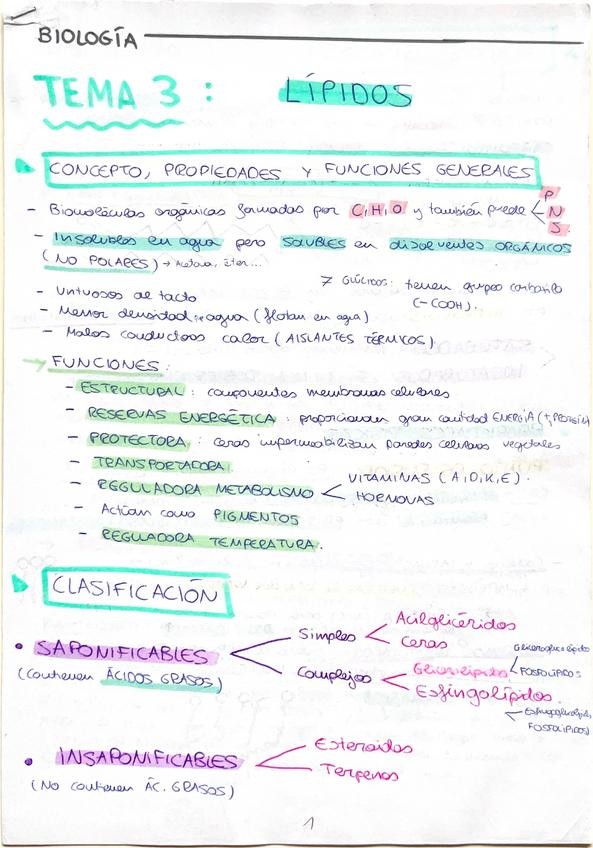 BIOLOGÍA
TEMA 3 : LÍPIDOS
CONCEPTO, PROPIEDADES Y FUNCIONES GENERALES
- Biomoléculas orgánicas formadas por C, H, O y también puede < P N S
- Insolubles en agua pero SOLUBLES en disolventes ORGÁNICOS
(NO POLARES) → Acetona, éter...
≠ GLÚCIDOS: tienen grupo carbonilo
(-COOH).
- Untuosos al tacto
- Menor densidad agua (flotan en agua)
- Malos conductores calor (AISLANTES TÉRMICOS)
→ FUNCIONES:
- ESTRUCTURAL: componentes membranas celulares
- RESERVAS ENERGÉTICA: proporcionan gran cantidad ENERGÍA (+ PROTEÍN
- PROTECTORA: ceras impermeabilizan paredes celulares vegetales
- TRANSPORTADORA.
- REGULADORA METABOLISMO < VITAMINAS (A, D, K, E).
HORMONAS
- Actúan como PIGMENTOS
- REGULADORA TEMPERATURA.
CLASIFICACIÓN
• SAPONIFICABLES
(Contienen ÁCIDOS GRASOS)
Simples < Acilglicéridos
Ceras
Complejos < Glicerolípidos < Gliceroglucolípidos
FOSFOLÍPIDOS
Esfingolípidos < Esfingoglucolípidos
FOSFOLÍPIDOS)
• INSAPONIFICABLES < Esteroides
Terpenos
(No contienen ÁC. GRASOS)
1